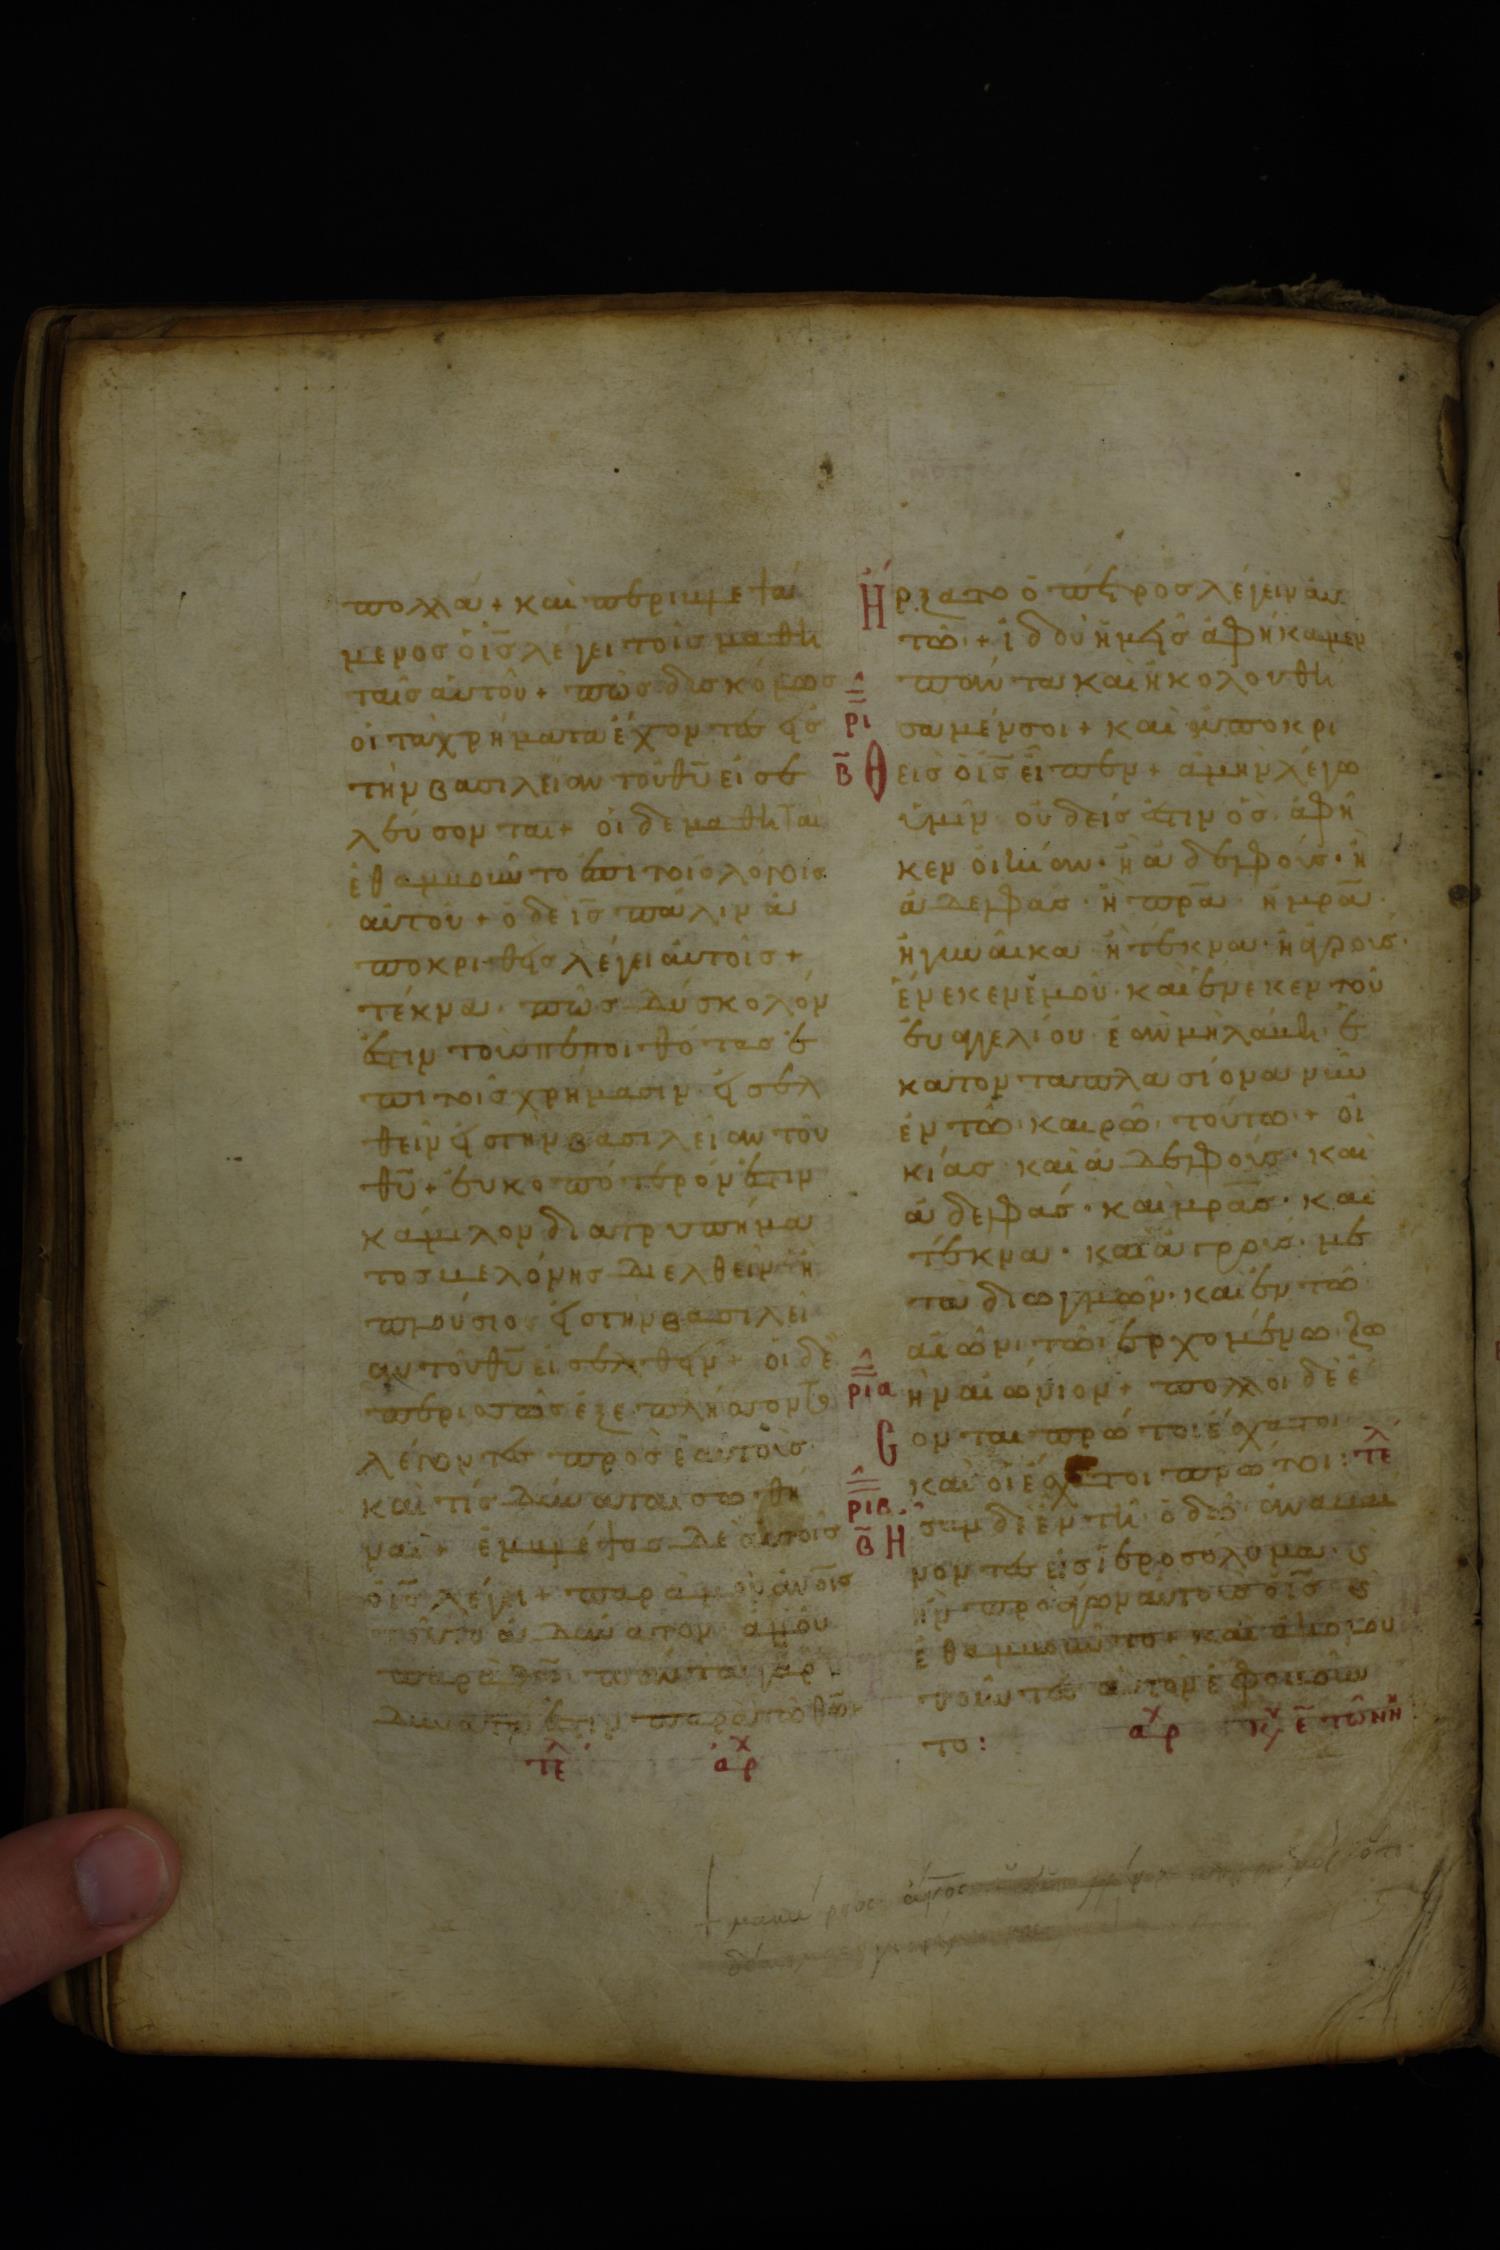 πολλά + και περιβλεψά
μενος ὁ ι̅ς̅ λέγει τοῖς μαθη
ταῖς αὐτοῦ + πῶς δυσκόλως
οἱ τὰ χρήματα ἔχοντες εἰς
τὴν βασιλείαν τοῦ θ̅υ̅ εἰσε
λεύσονται + οἱ δὲ μαθηταὶ
ἐθαμβοῦντο ἐπὶ τοῖς λόγοις
αὐτοῦ + ὁ δὲ ι̅ς̅ πάλιν ἀ
ποκριθεὶς λέγει αὐτοῖς +
τέκνα πῶς δύσκολόν
ἐστιν τοὺς πεποιθότας ἐ
πὶ τοῖς χρήμασιν εἰσελ
θεῖν εἰς τὴν βασιλείαν τοῦ
θ̅υ̅ + εὐκοπώτερόν ἐστιν
κάμηλον διὰ τρυπήμα
τος βελόνης διελθεῖν ἢ
πλούσιον εἰς τὴν βασιλεί
αν τοῦ θ̅υ̅ εἰσελθεῖν + οἱ δὲ
περισσῶς ἐξεπλήσσοντο
λέγοντες πρὸς ἑαυτούς
καὶ τίς δύναται σωθῆ
ναι + ἐμβλέψας δὲ αὐτοῖς
ὁ ι̅ς̅ λέγει + παρὰ μὲν α̅ν̅ο̅ι̅ς
τοῦτο ἀδύνατον ἀλλ' οὐ
παρὰ θ̅ω̅ πάντα γὰρ
δυνατά ἐστιν παρὰ τῶ θ̅ω̅ +
τε^λ ἀρ^χ
Ἤρξατο ὁ πέτρος λέγειν αὐ
τῶ + ἰδοὺ ἡμεῖς ἀφήκαμεν
πάντα καὶ ἠκολουθή
ρι
σαμέν σοι + καὶ ἀποκρι
β Θεὶς ὁ ι̅ς̅ εἶπεν + ἀμὴν λέγω
ὑμῖν οὐδείς ἐστιν ὃς ἀφῆ
κεν οἰκίαν · ἢ ἀδελφούς · ἢ
ἀδελφάς · ἢ π̅ρ̅α̅ · ἢ μ̅ρ̅α̅ ·
ἢ γυναῖκα ἢ τέκνα · ἢ ἀγρούς ·
ἕνεκεν ἐμοῦ · καὶ ἕνεκεν τοῦ
εὐαγγελίου ἐὰν μὴ λάβη ἑ
κατονταπλασίονα νῦν
ἐν τῶ καιρῶ τούτω + οἰ
κίας καὶ ἀδελφούς · καὶ
ἀδελφάς · καὶ μ̅ρ̅α̅ς · καὶ
τέκνα · καὶ ἀγρούς · με
τὰ διωγμῶν · καὶ ἐν τῶ
αἰῶνι τῶ ἐρχομένω ζω
ρια
ὴν αἰώνιον + πολλοὶ δὲ ἔ
Σονται πρῶτοι ἔσχατοι
καὶ οἱ ἔσχατοι πρῶτοι : τε^λ
ριβ
β Ησαν δὲ ἐν τῆ ὁδῶ ἀναβαί
νοντες εἰς ἱεροσόλυμα · καὶ
ἦν προάγων αὐτοὺς ὁ ι̅ς̅ καὶ
ἐθαμβοῦντο + καὶ ἀκολου
θοῦντες αὐτῶ ἐφοβοῦν
το :
ἀρ^χ κυ ε̅ τῶν νη